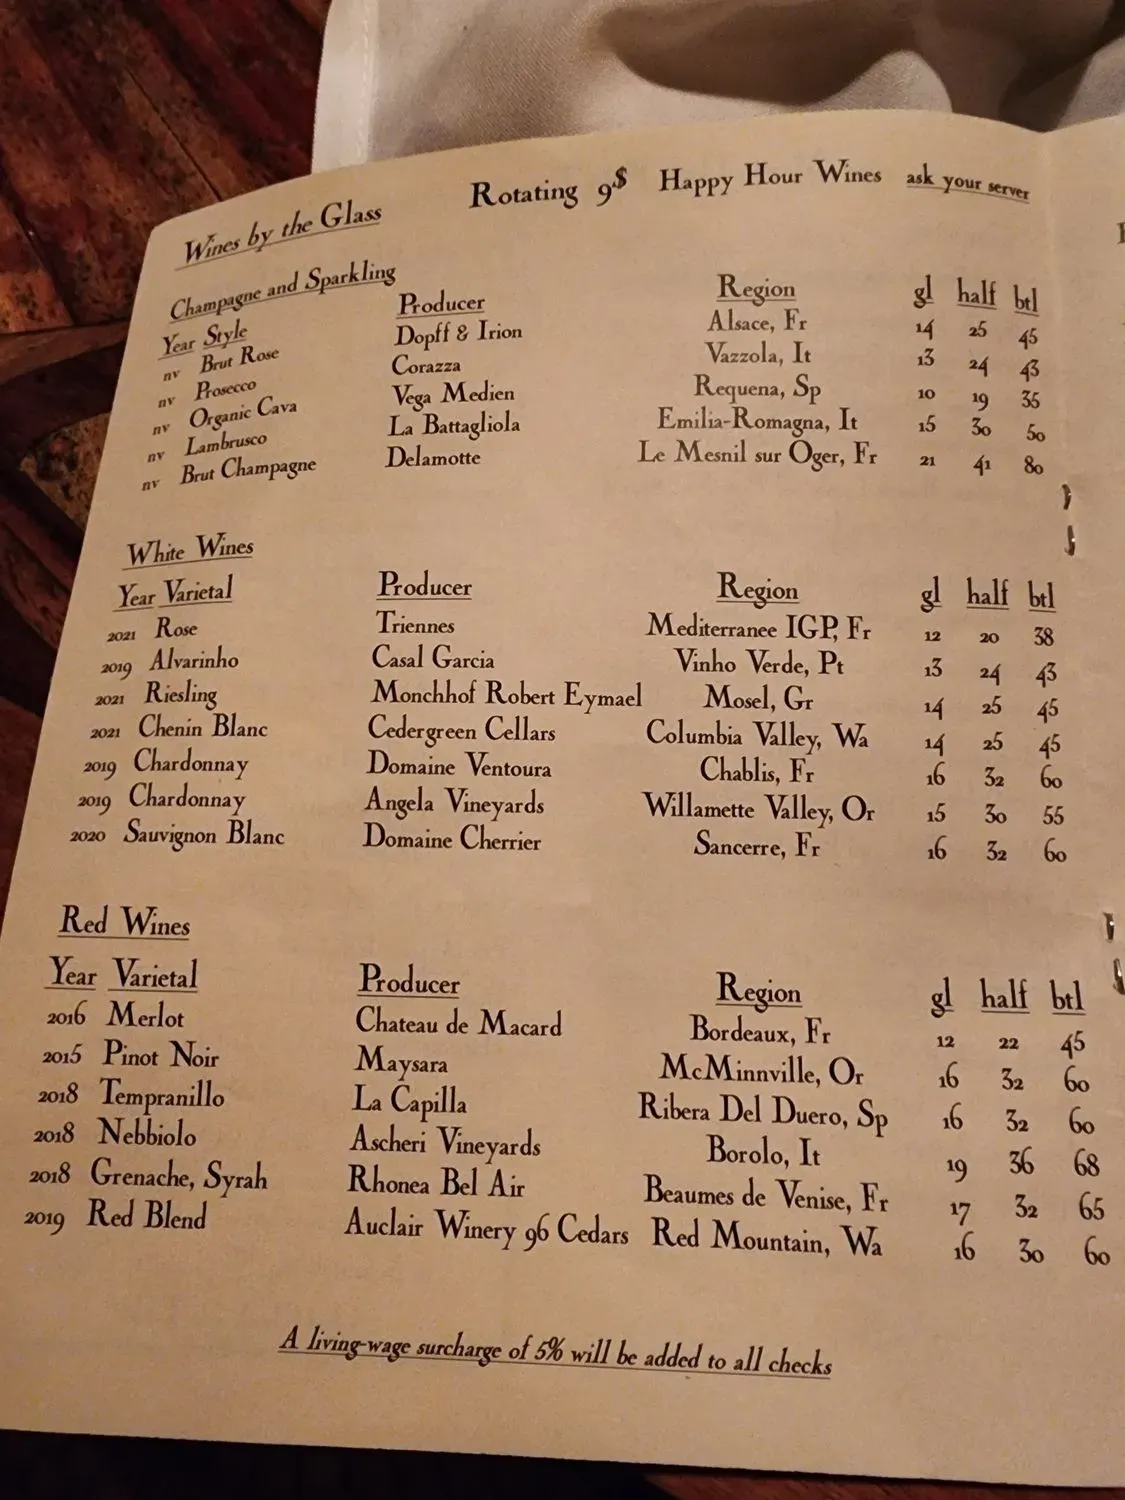 Rotating 9$ Happy Hour Wines ask your server
Wines by the Glass
Champagne and Sparkling
Year Style Producer Region gl half btl
nv Brut Rose Dopff & Irion Alsace, Fr 14 25 45
nv Prosecco Corazza Vazzola, It 13 24 43
nv Organic Cava Vega Medien Requena, Sp 10 19 35
nv Lambrusco La Battagliola Emilia-Romagna, It 15 30 50
nv Brut Champagne Delamotte Le Mesnil sur Oger, Fr 21 41 80
White Wines
Year Varietal Producer Region gl half btl
2021 Rose Triennes Mediterranee IGP, Fr 12 20 38
2019 Alvarinho Casal Garcia Vinho Verde, Pt 13 24 43
2021 Riesling Monchhof Robert Eymael Mosel, Gr 14 25 45
2021 Chenin Blanc Cedergreen Cellars Columbia Valley, Wa 14 25 45
2019 Chardonnay Domaine Ventoura Chablis, Fr 16 32 60
2019 Chardonnay Angela Vineyards Willamette Valley, Or 15 30 55
2020 Sauvignon Blanc Domaine Cherrier Sancerre, Fr 16 32 60
Red Wines
Year Varietal Producer Region gl half btl
2016 Merlot Chateau de Macard Bordeaux, Fr 12 22 45
2015 Pinot Noir Maysara McMinnville, Or 16 32 60
2018 Tempranillo La Capilla Ribera Del Duero, Sp 16 32 60
2018 Nebbiolo Ascheri Vineyards Borolo, It 19 36 68
2018 Grenache, Syrah Rhonea Bel Air Beaumes de Venise, Fr 17 32 65
2019 Red Blend Auclair Winery 96 Cedars Red Mountain, Wa 16 30 60
A living-wage surcharge of 5% will be added to all checks